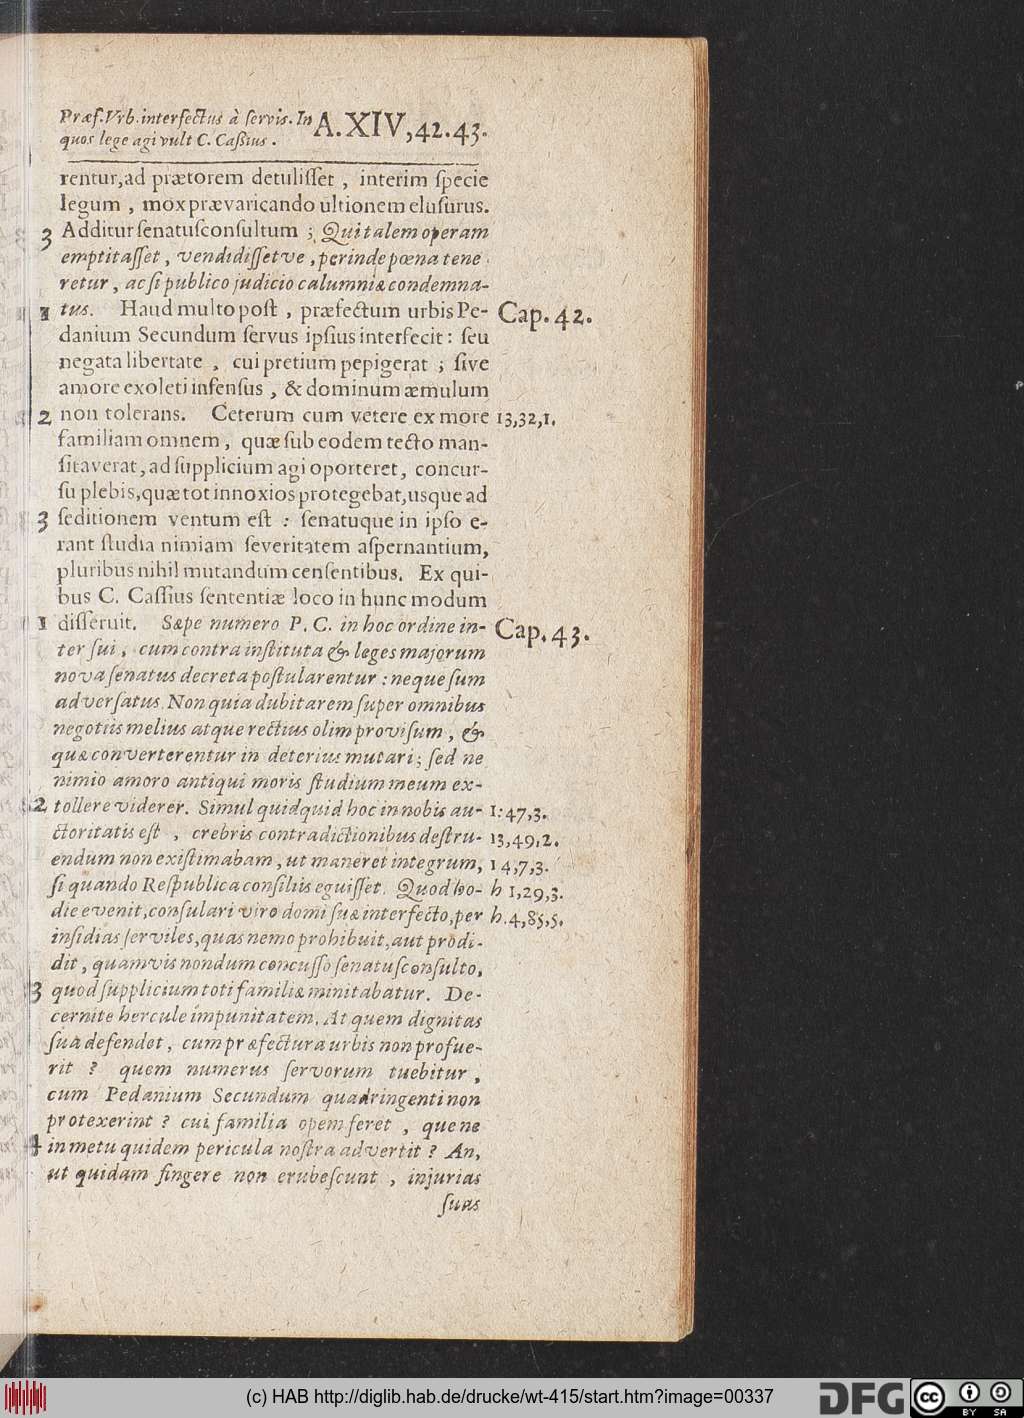 Præf. Vrb. interfectus à servis. In A. XIV, 42. 43.
quos lege agi vult C. Cassius.
rentur, ad prætorem detulisset, interim specie
legum, mox prævaricando ultionem elusurus.
3 Additur senatusconsultum; Qui talem operam
emptitasset, vendidissetve, perinde pœna tene
retur, ac si publico judicio calumniæ condemna-
1 tus. Haud multo post, præfectum urbis Pe- Cap. 42.
danium Secundum servus ipsius interfecit: seu
negata libertate, cui pretium pepigerat; sive
amore exoleti infensus, & dominum æmulum
2 non tolerans. Ceterum cum vetere ex more 13,32,1.
familiam omnem, quæ sub eodem tecto man-
sitaverat, ad supplicium agi oporteret, concur-
su plebis, quæ tot innoxios protegebat, usque ad
3 seditionem ventum est: senatuque in ipso e-
rant studia nimiam severitatem aspernantium,
pluribus nihil mutandum censentibus. Ex qui-
bus C. Cassius sententiæ loco in hunc modum
1 disseruit. Sæpe numero P. C. in hoc ordine in- Cap. 43.
ter fui, cum contra instituta & leges majorum
nova senatus decreta postularentur: neque sum
adversatus. Non quia dubitarem super omnibus
negotiis melius atque rectius olim provisum, &
quæ converterentur in deterius mutari; sed ne
nimio amoro antiqui moris studium meum ex-
2 tollere viderer. Simul quidquid hoc in nobis au- 1:47,3.
ctoritatis est, crebris contradictionibus destru- 13,49,2.
endum non existimabam, ut maneret integrum, 14,7,3.
si quando Respublica consiliis eguisset. Quod ho- h 1,29,3.
die evenit, consulari viro domi suæ interfecto, per h. 4,85,5.
insidias serviles, quas nemo prohibuit, aut prodi-
dit, quamvis nondum concusso senatusconsulto,
3 quod supplicium toti familiæ minitabatur. De-
cernite hercule impunitatem. At quem dignitas
sua defendet, cum præfectura urbis non profue-
rit? quem numerus servorum tuebitur,
cum Pedanium Secundum quadringenti non
protexerint? cui familia opem feret, que ne
4 in metu quidem pericula nostra advertit? An,
ut quidam fingere non erubescunt, injurias
suas
(c) HAB http://diglib.hab.de/drucke/wt-415/start.htm?image=00337
DFG
cc BY SA